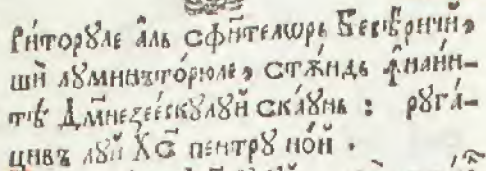 Рҥ҆торꙋле а҆ль сфи҆нтелѡрь Бесѣричїй,
шѝ лꙋминъто́рюле, стѫ́ндь ꙟ҆наи́н-
тѣ Дм҃незее́скꙋлꙋй ска́ꙋнь : рꙋга́-
цивъ лꙋй Х҃с пентрꙋ но́й .